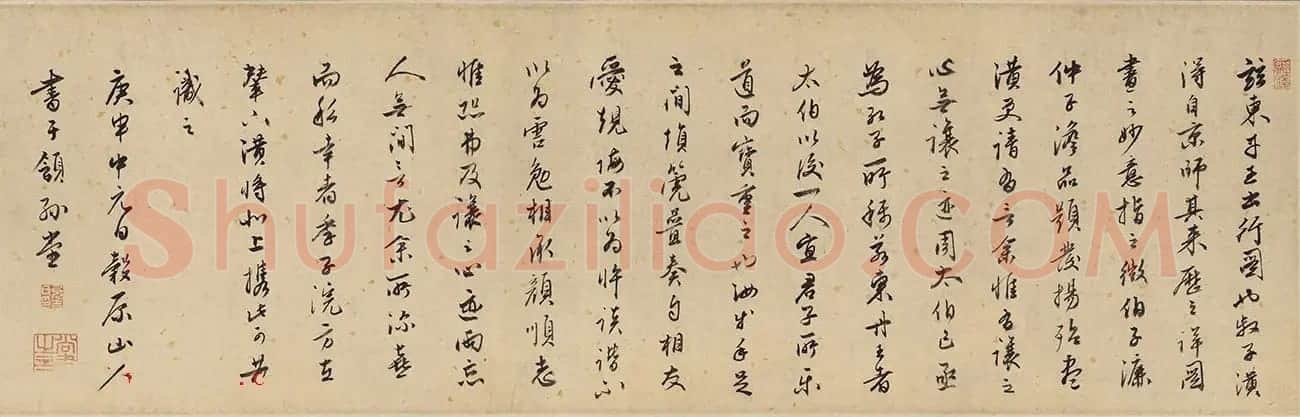 兹東丹王出行圖也叔子潢
得自京師其來歷之詳圖
畫之妙意指之微伯子濂
仲子澹品題發揚殆盡
潢更請為言余惟有讓之
心無讓之迹周太伯已亟
為孔子所稱若東丹王者
太伯以後一人宜君子所樂
道而寶重之也汝
之間塤篪疊奏自相友
愛規誨不以為忤談諧不
以為雲勉相承顏順志
惟恐弗及讓之心迹兩忘
人無間言尤余所深喜
而私幸者季子浣方在
輦下潢將北上攜此可共
識之
庚申中元日穀原山人
書于領孫堂
Shufaziliao.COM